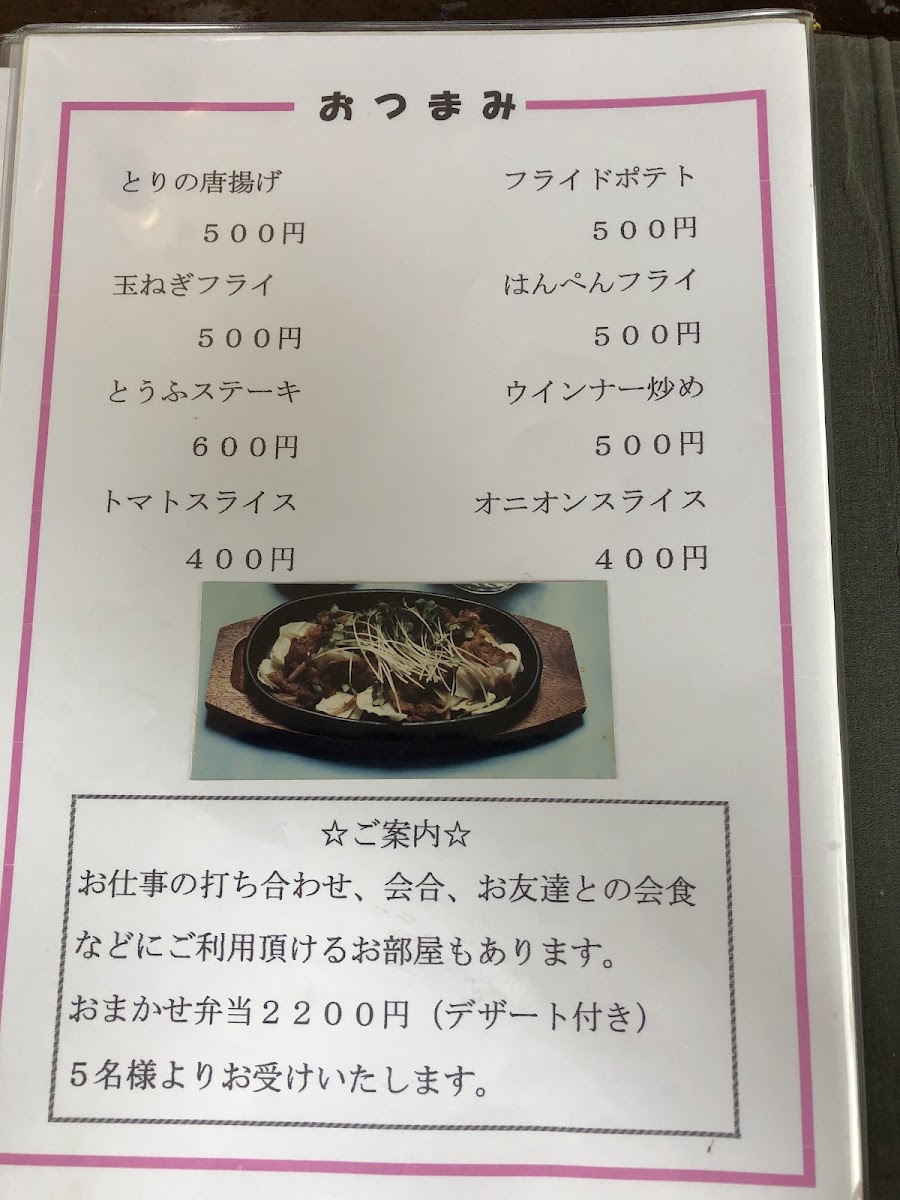 おつまみ
とりの唐揚げ
５００円
フライドポテト
５００円
玉ねぎフライ
５００円
はんぺんフライ
５００円
とうふステーキ
６００円
ウインナー炒め
５００円
トマトスライス
４００円
オニオンスライス
４００円
☆ご案内☆
お仕事の打ち合わせ、会合、お友達との会食
などにご利用頂けるお部屋もあります。
おまかせ弁当２２００円（デザート付き）
５名様よりお受けいたします。